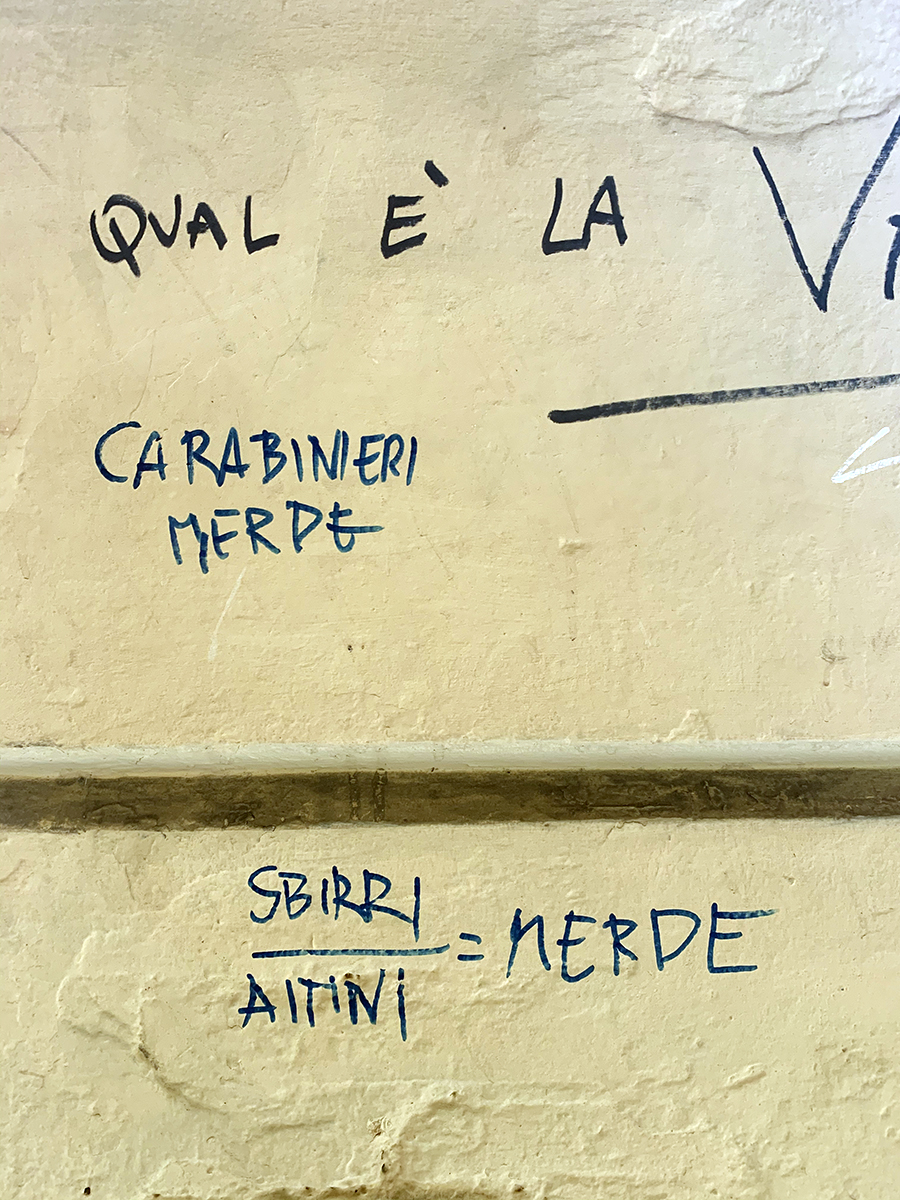 QUAL E' LA
CARABINIERI
MERDE
SBIRRI
AITINI
= MERDE